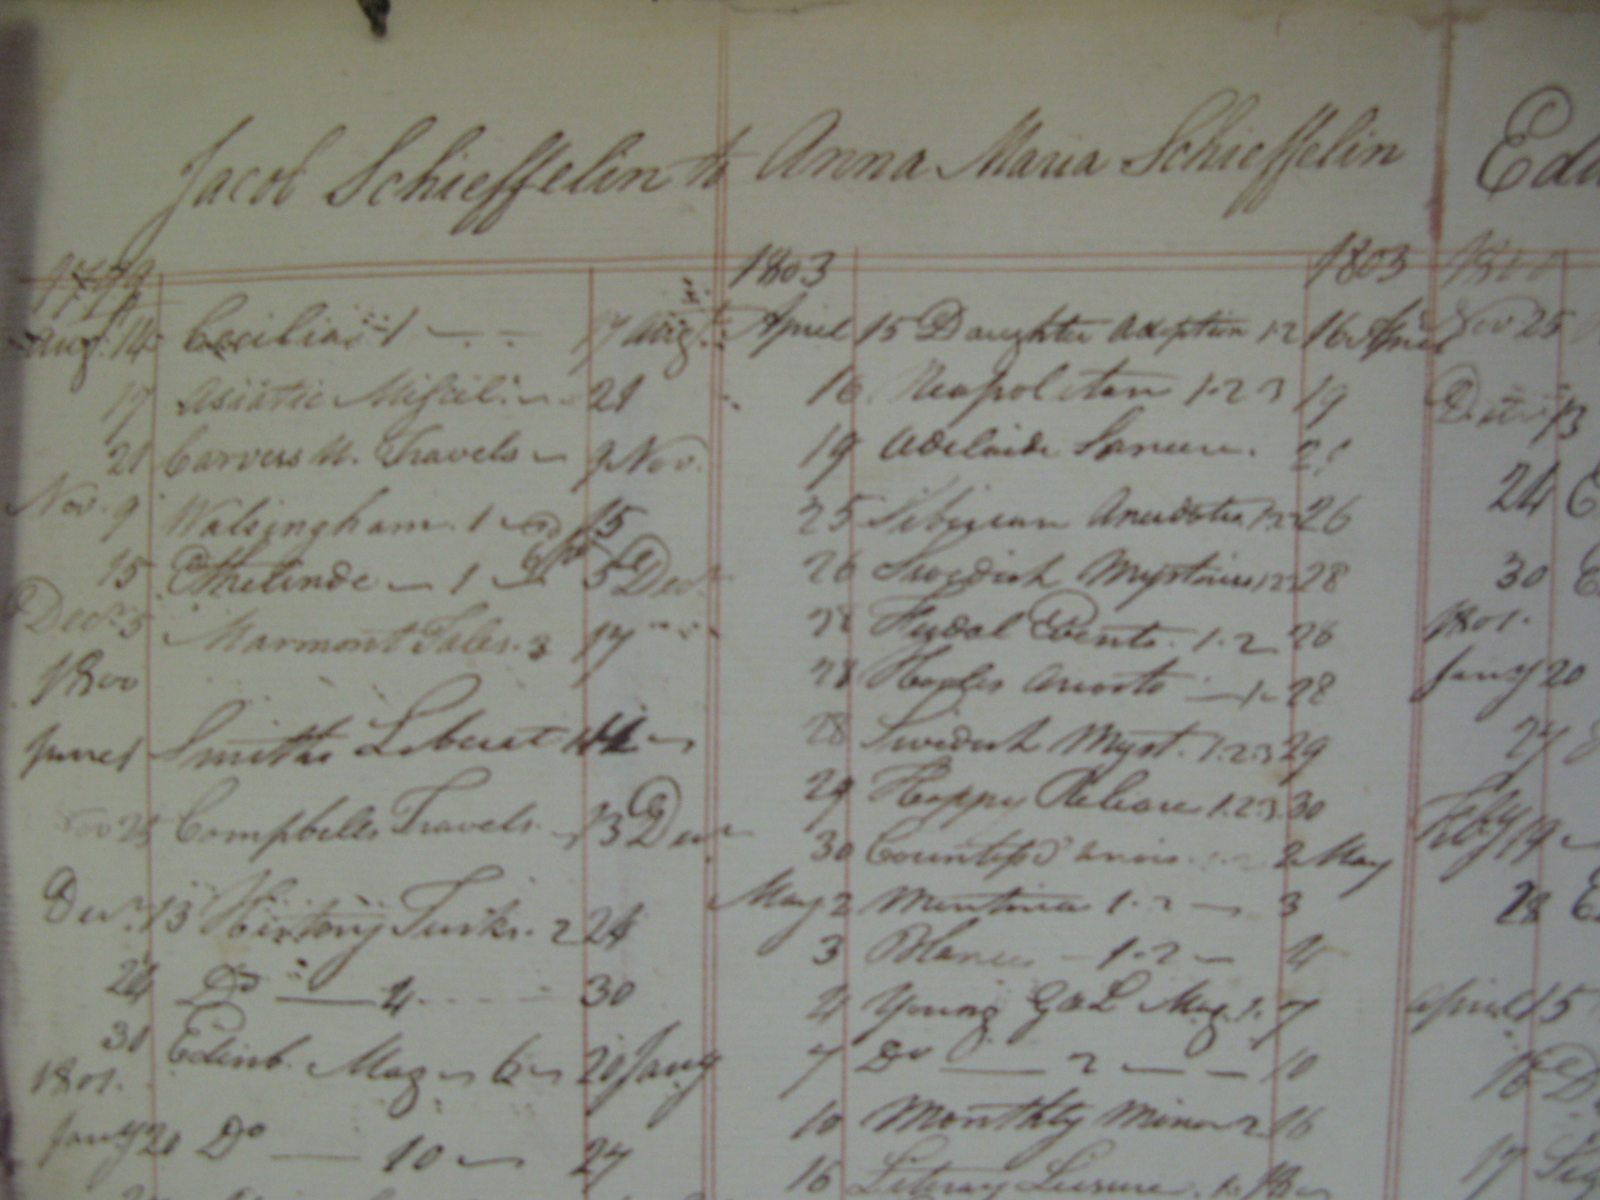 Jacob Schieffelin to Anna Maria Schieffelin
1799
Aug. 14 Cecilia 1 17 Aug.
17 Asiatic Miscel. 21
21 Carvers N. Travels 9 Nov.
Nov. 9 Walsingham. 1 15
15 Ethelinde 1 5 Decr
Decr. 5 Marmont Tales. 3 17
1800
June 1 Smiths
Nov 25 Campbells Travels. 13 Decr
Decr. 13 History Turks. 2 24
24 Do 4 30
31 Edinb. Mag 6 20 Jany
1801.
Jany 20 Do 10 27
1803 1803
April 15 Daughter Adoption 1.2 16 April
16 Neapolitan 1.2.3 19
19 Adelaide
25 Siberian Anecdotes 1.2 26
26 Swedish Mysteries 1.2 28
Fudal Events. 1.2 28
28 Naples 1 28
28 Swedish Myst. 1.2.3 29
29 Happy 1.2.3. 30
30 2 May
May 2 Mentoria 1.2 3
3 1.2 4
4 Young G & L Mag. 1. 7
7 Do 2 10
10 Monthly Mirror 2 16
16 Literary Leisure. 1. 18
Nov 25
Decr. 13
24
30
1801.
Jany 20
27
Feby 19
28
April 15
16
17